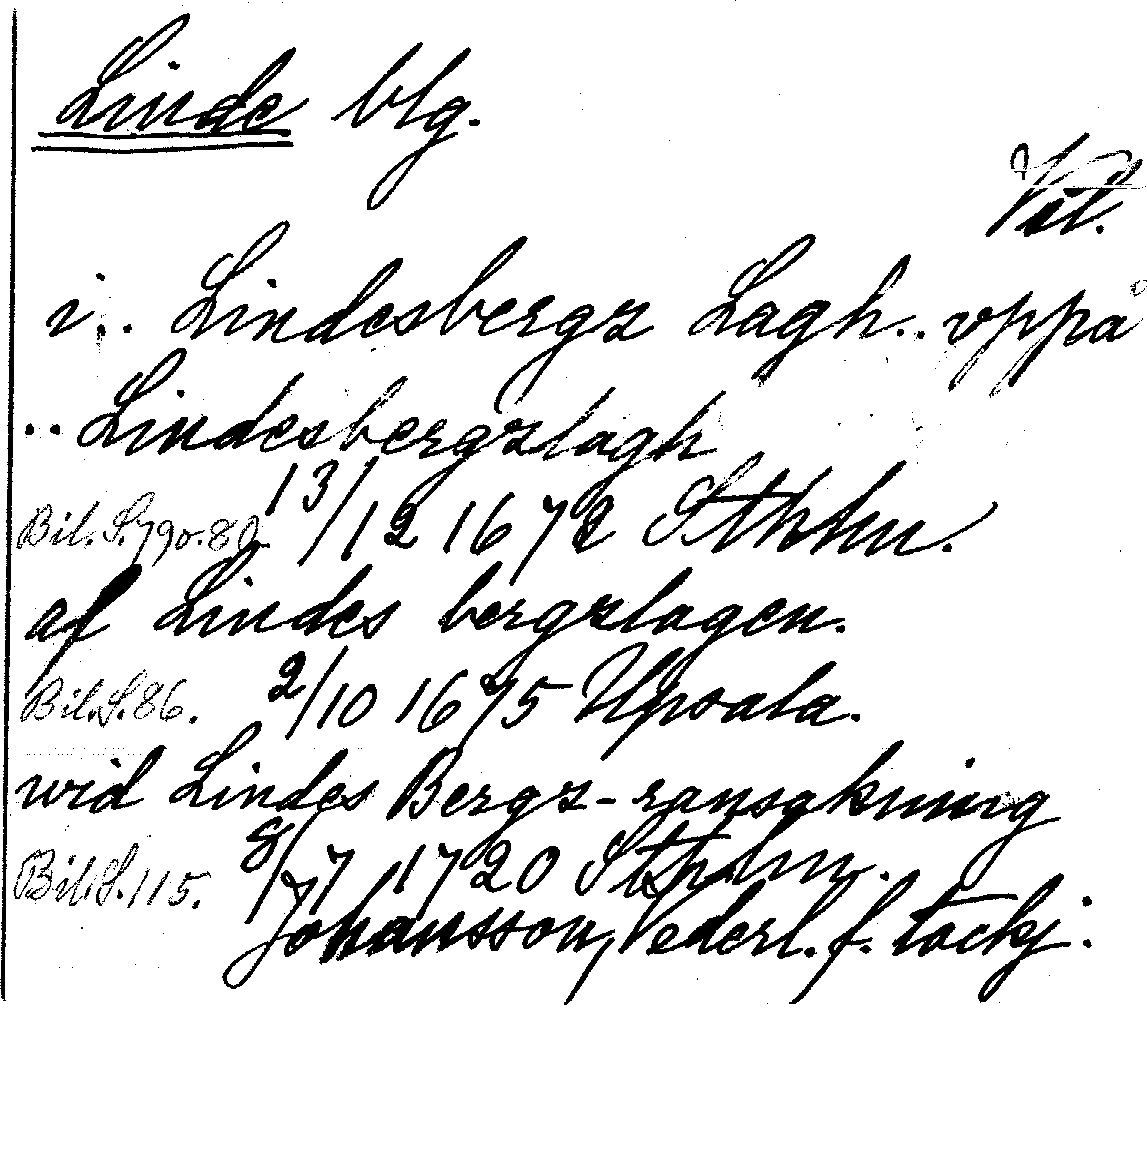 Linde blg.
Vstl.
i .. Lindesbergz Lagh .. vppå
.. Lindesbergzlagh
Bil. S. 79 o. 80. 13/12 1672 Sthlm.
af Lindes bergzlagen.
Bil. S. 86. 2/10 1675 Upsala.
wid Lindes Bergz-ransakning
Bil. S. 115. 8/7 1720 Sthlm.
Johansson, Vederl. f. tackj.